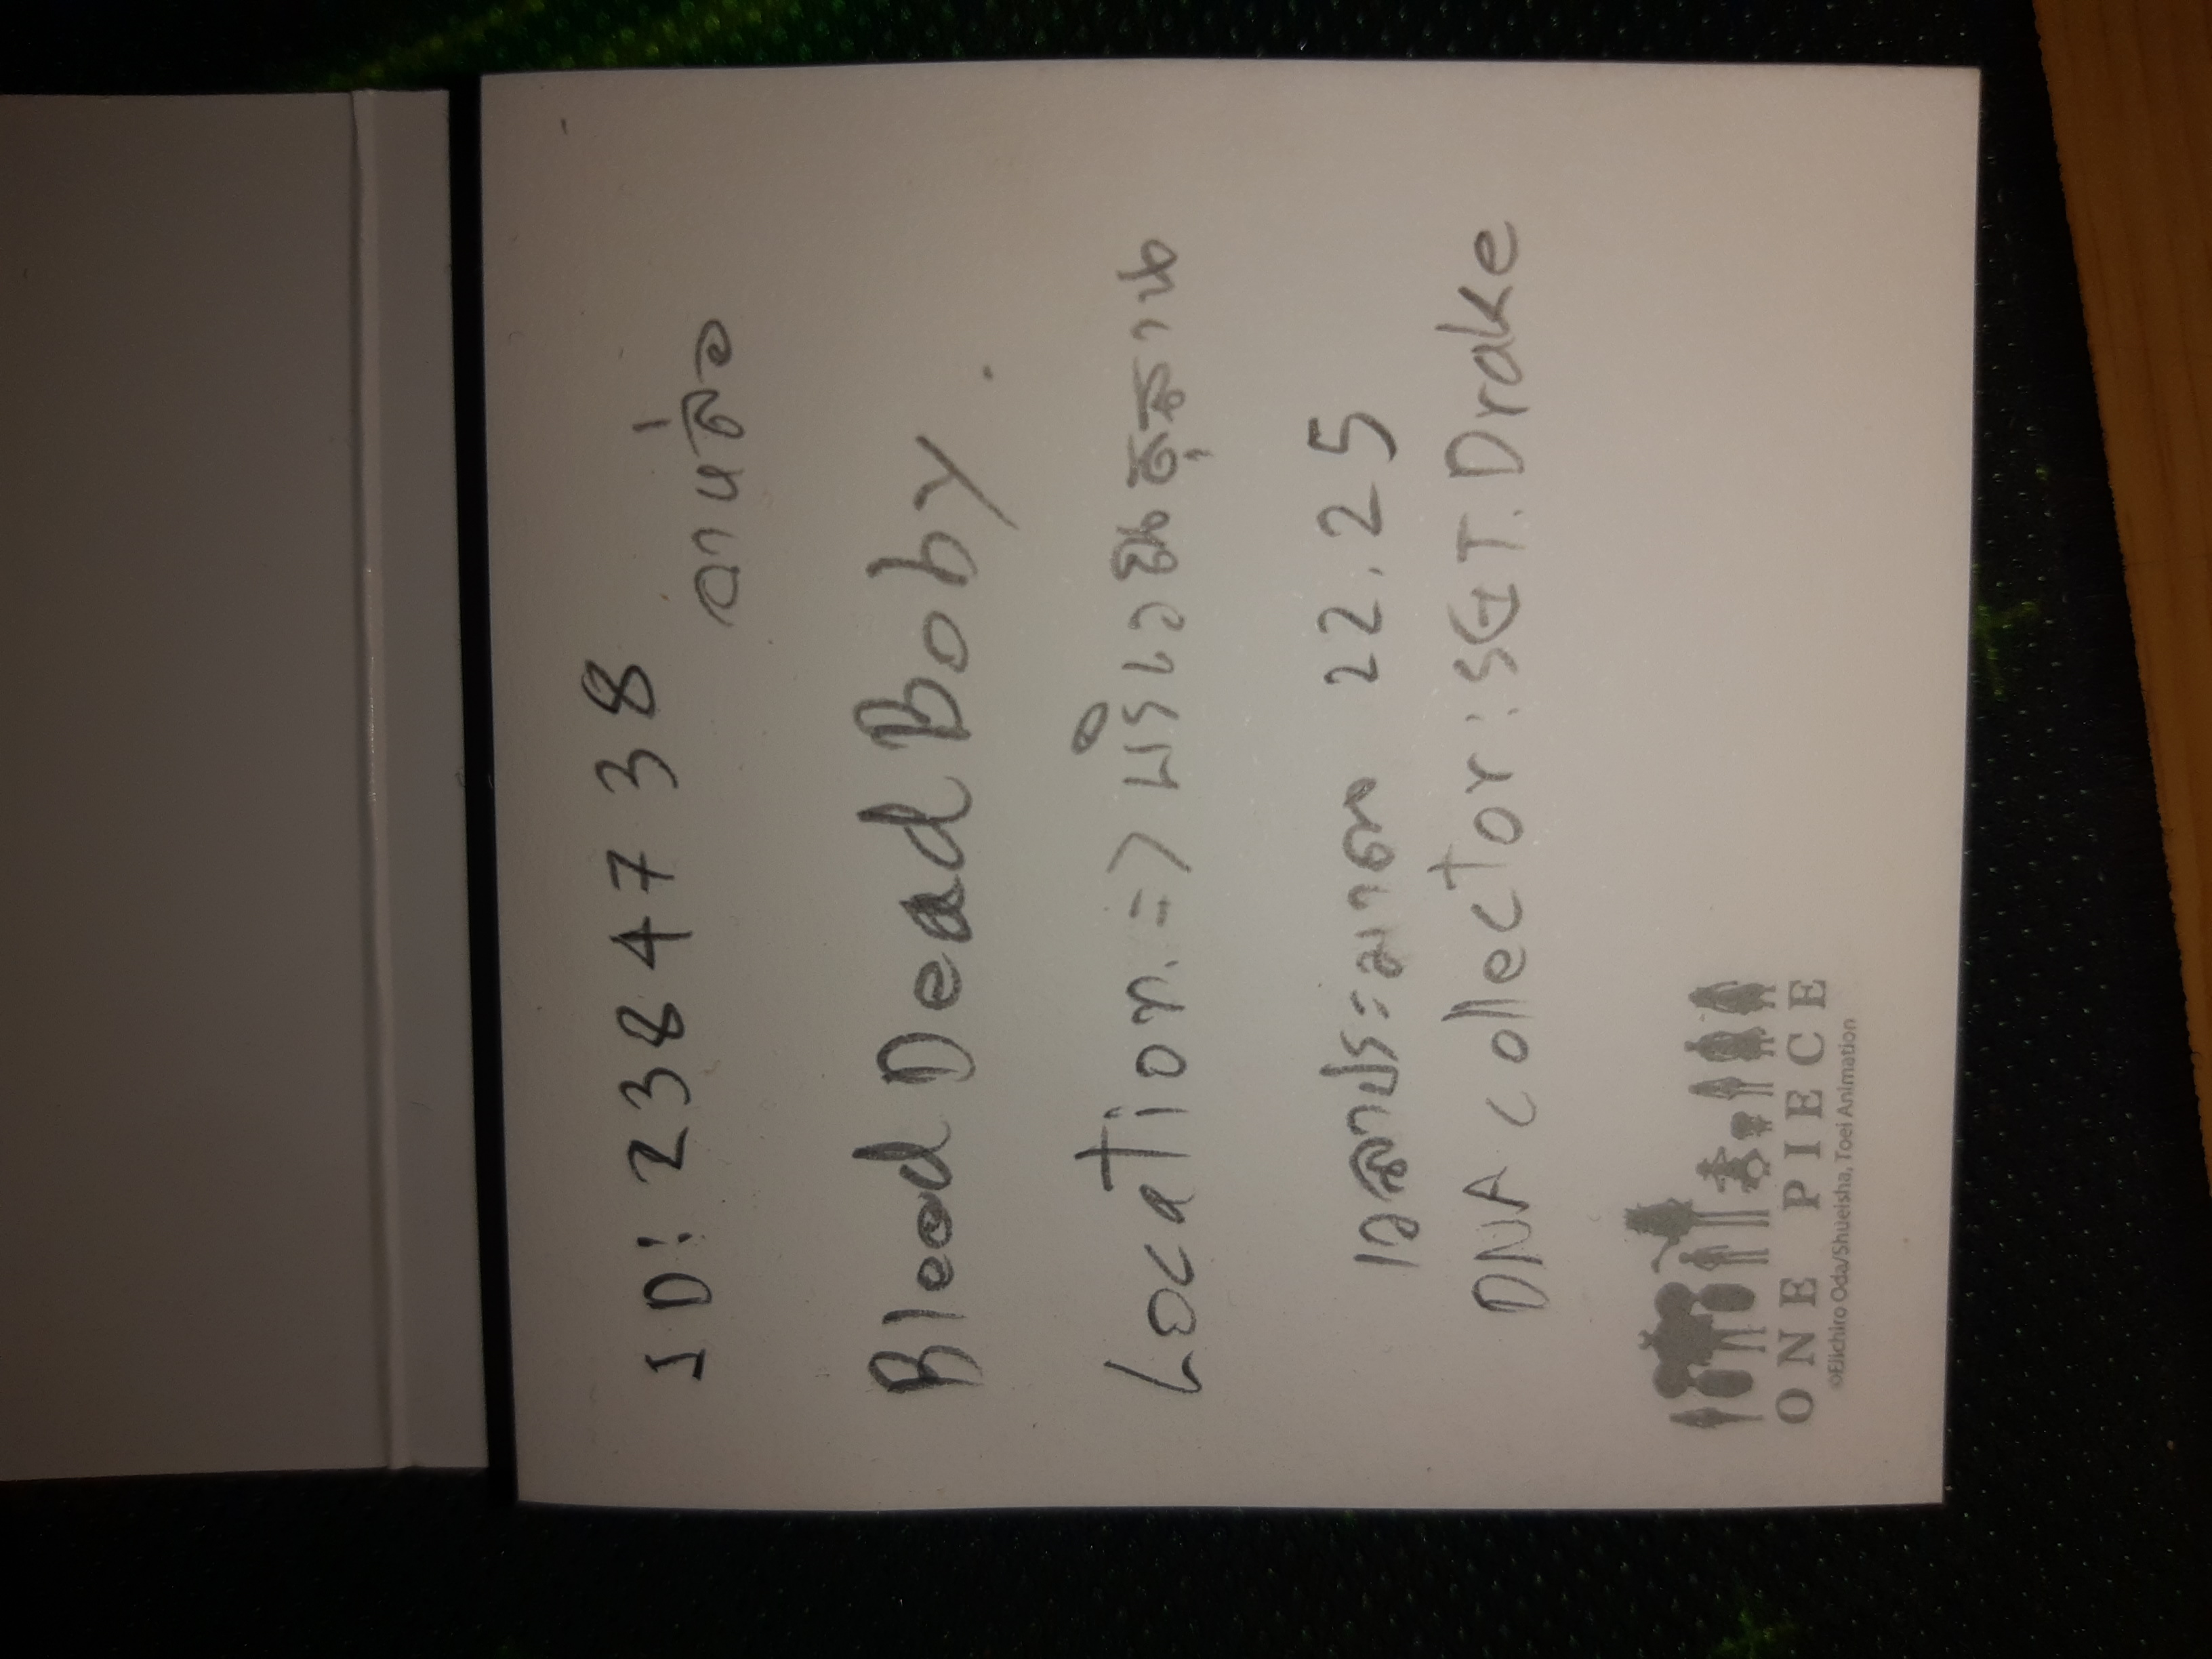 ID: 2384738
อาหล่อ
Blood Dead Boby.
Location. => บริเวณสุสาน
เวลาประมาณ 22.25
DNA collector: SGT. Drake
ONE PIECE
©Eiichiro Oda/Shueisha, Toei Animation